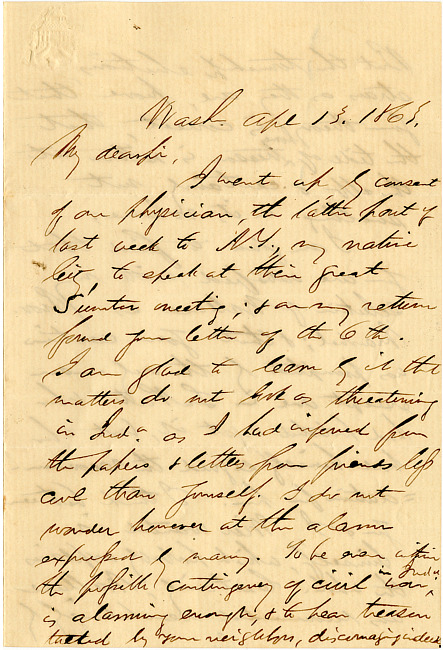 Wash. Apl 13. 1863.
My dear sir,
I went up by consent
of our physician, the latter part of
last week to N.Y., my native
city, to speak at their great
Sumter meeting; & on my return
found your letter of the 6th.
I am glad to learn by it that
matters do not look as threatening
in Inda as I had inferred from
the papers & letters from friends less
than yourself. I do not
wonder however at the alarm
expressed by many. To be even within
the possible contingency of civil war in Inda
is alarming enough, & to hear treason
by your neighbors, discouraging indeed